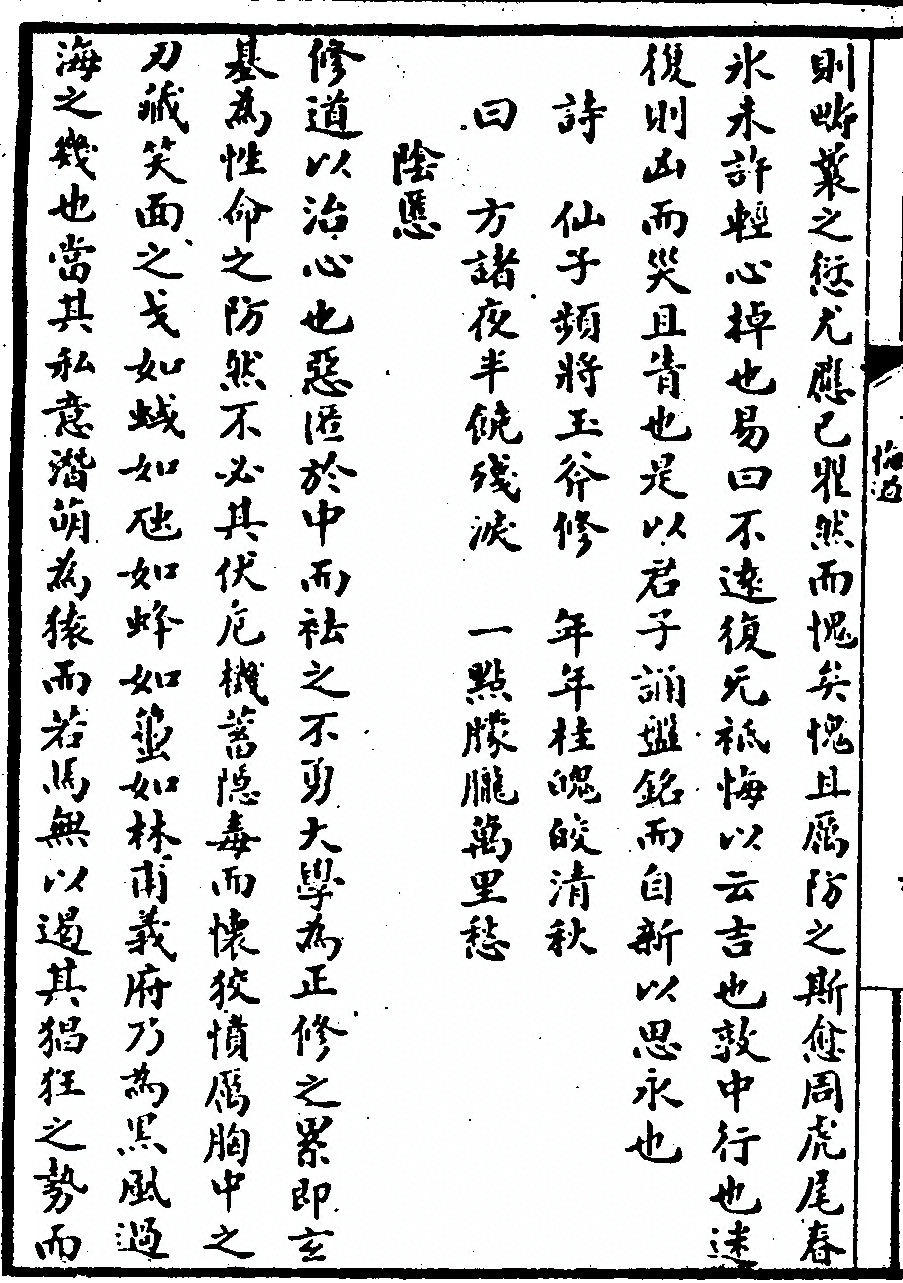 則疇叢之愆尤應已瞿然而愧矣愧且厲防之斯愈周虎尾春
氷未許輕心掉也易曰不遠復无祇悔以云吉也敦中行也迷
復則凶而災且眚也是以君子誦盤銘而自新以思永也
詩　仙子頻將玉斧修　年年桂魄皎清秋
曰　方諸夜半饒殘淚　一點朦朧萬里愁
陰慝
修道以治心也惡匿於中而袪之不勇大學為正修之累即玄
基為性命之防然不必其伏危機蓄隱毒而懷狡憤厲胸中之
刃藏笑面之戈如蜮如虺如蜂如蠆如林甫義府乃為黑風過
海之幾也當其私意潛萌為猿而若馬無以遏其猖狂之勢而
悔過